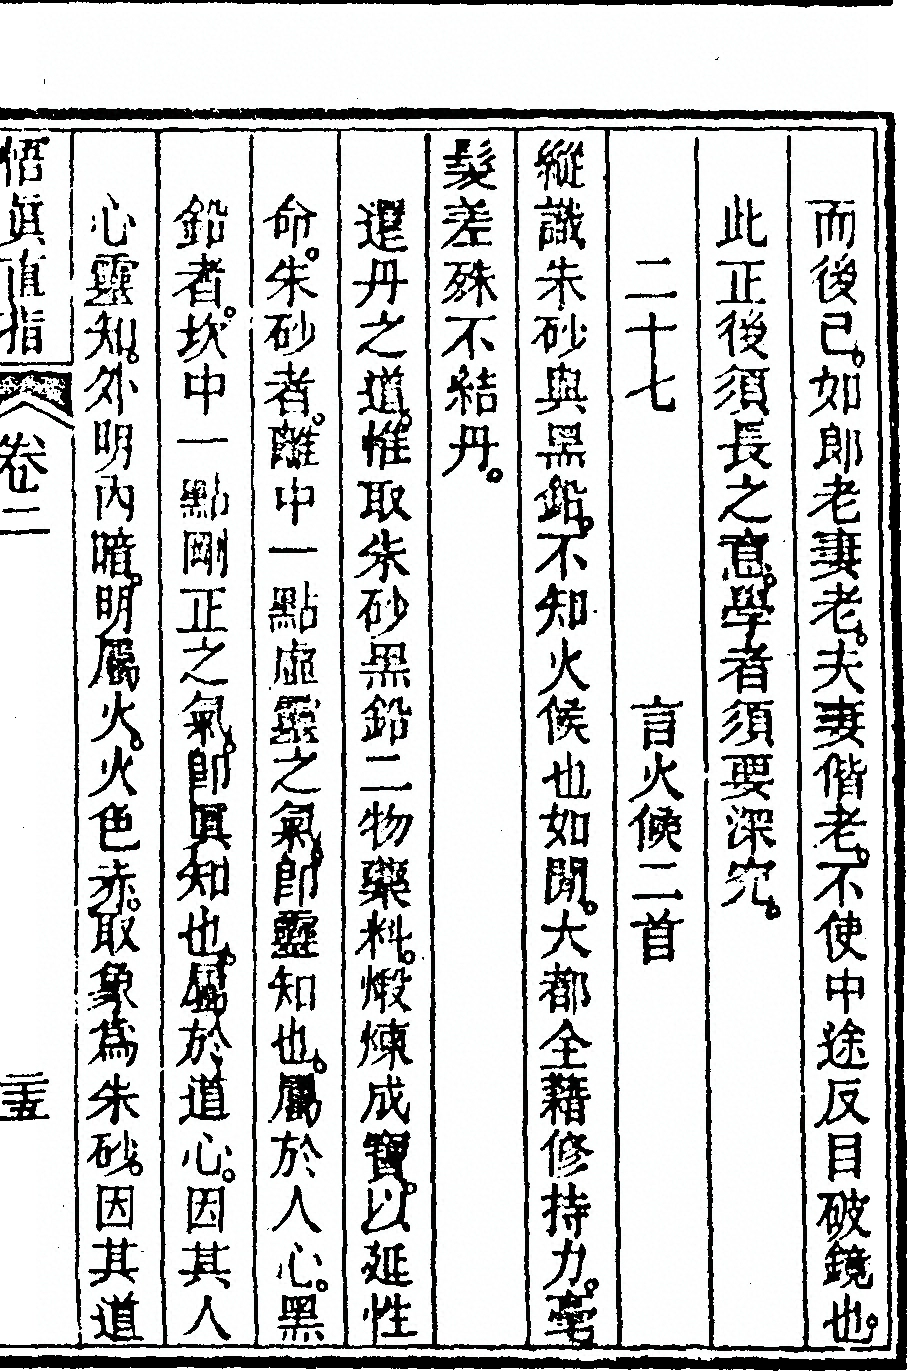 而後已。如郎老妻老。夫妻偕老。不使中途反目破鏡也。
此正後須長之意。學者須要深究。
二十七　言火候二首
縱識朱砂與黑鉛。不知火候也如閒。大都全藉修持力。毫
髮差殊不結丹。
還丹之道。惟取朱砂黑鉛二物藥料。煅煉成寶。以延性
命。朱砂者。離中一點虛靈之氣。卽靈知也。屬於人心。黑
鉛者。坎中一點剛正之氣。卽眞知也。屬於道心。因其人
心靈知。外明內暗。明屬火。火色赤。取象爲朱砂。因其道
悟眞直指　卷二　二十五